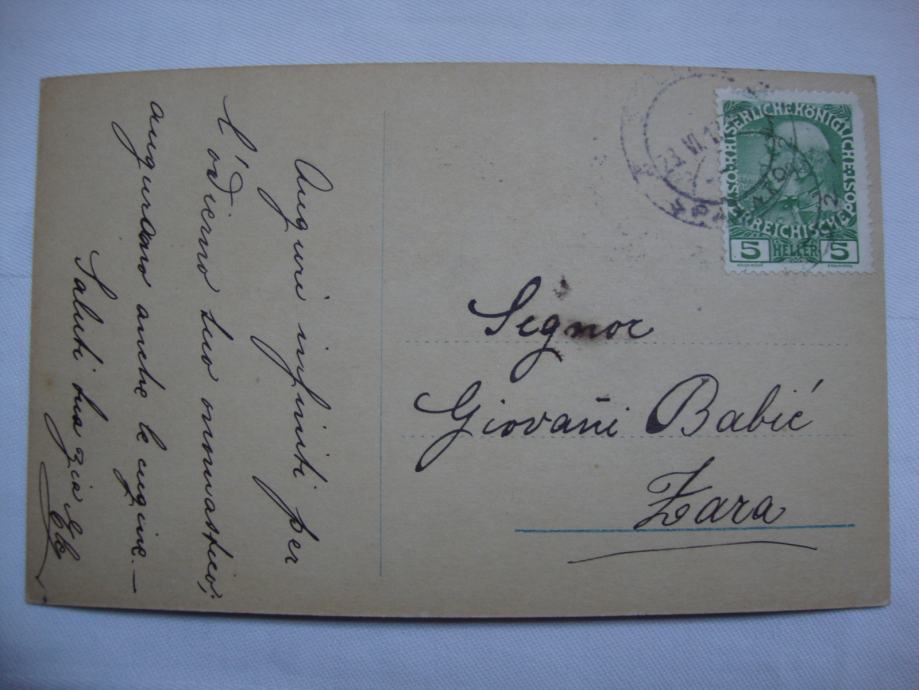 Auguri infiniti per
l'odierno tuo onomastico;
augurano anche le cugine. —
Saluti tua zia
KAISERLICHE KÖNIGLICHE
ÖSTERREICHISCHE
5 HELLER 5
23. VI. 1
Segnor
Giovañi Babić
Zara